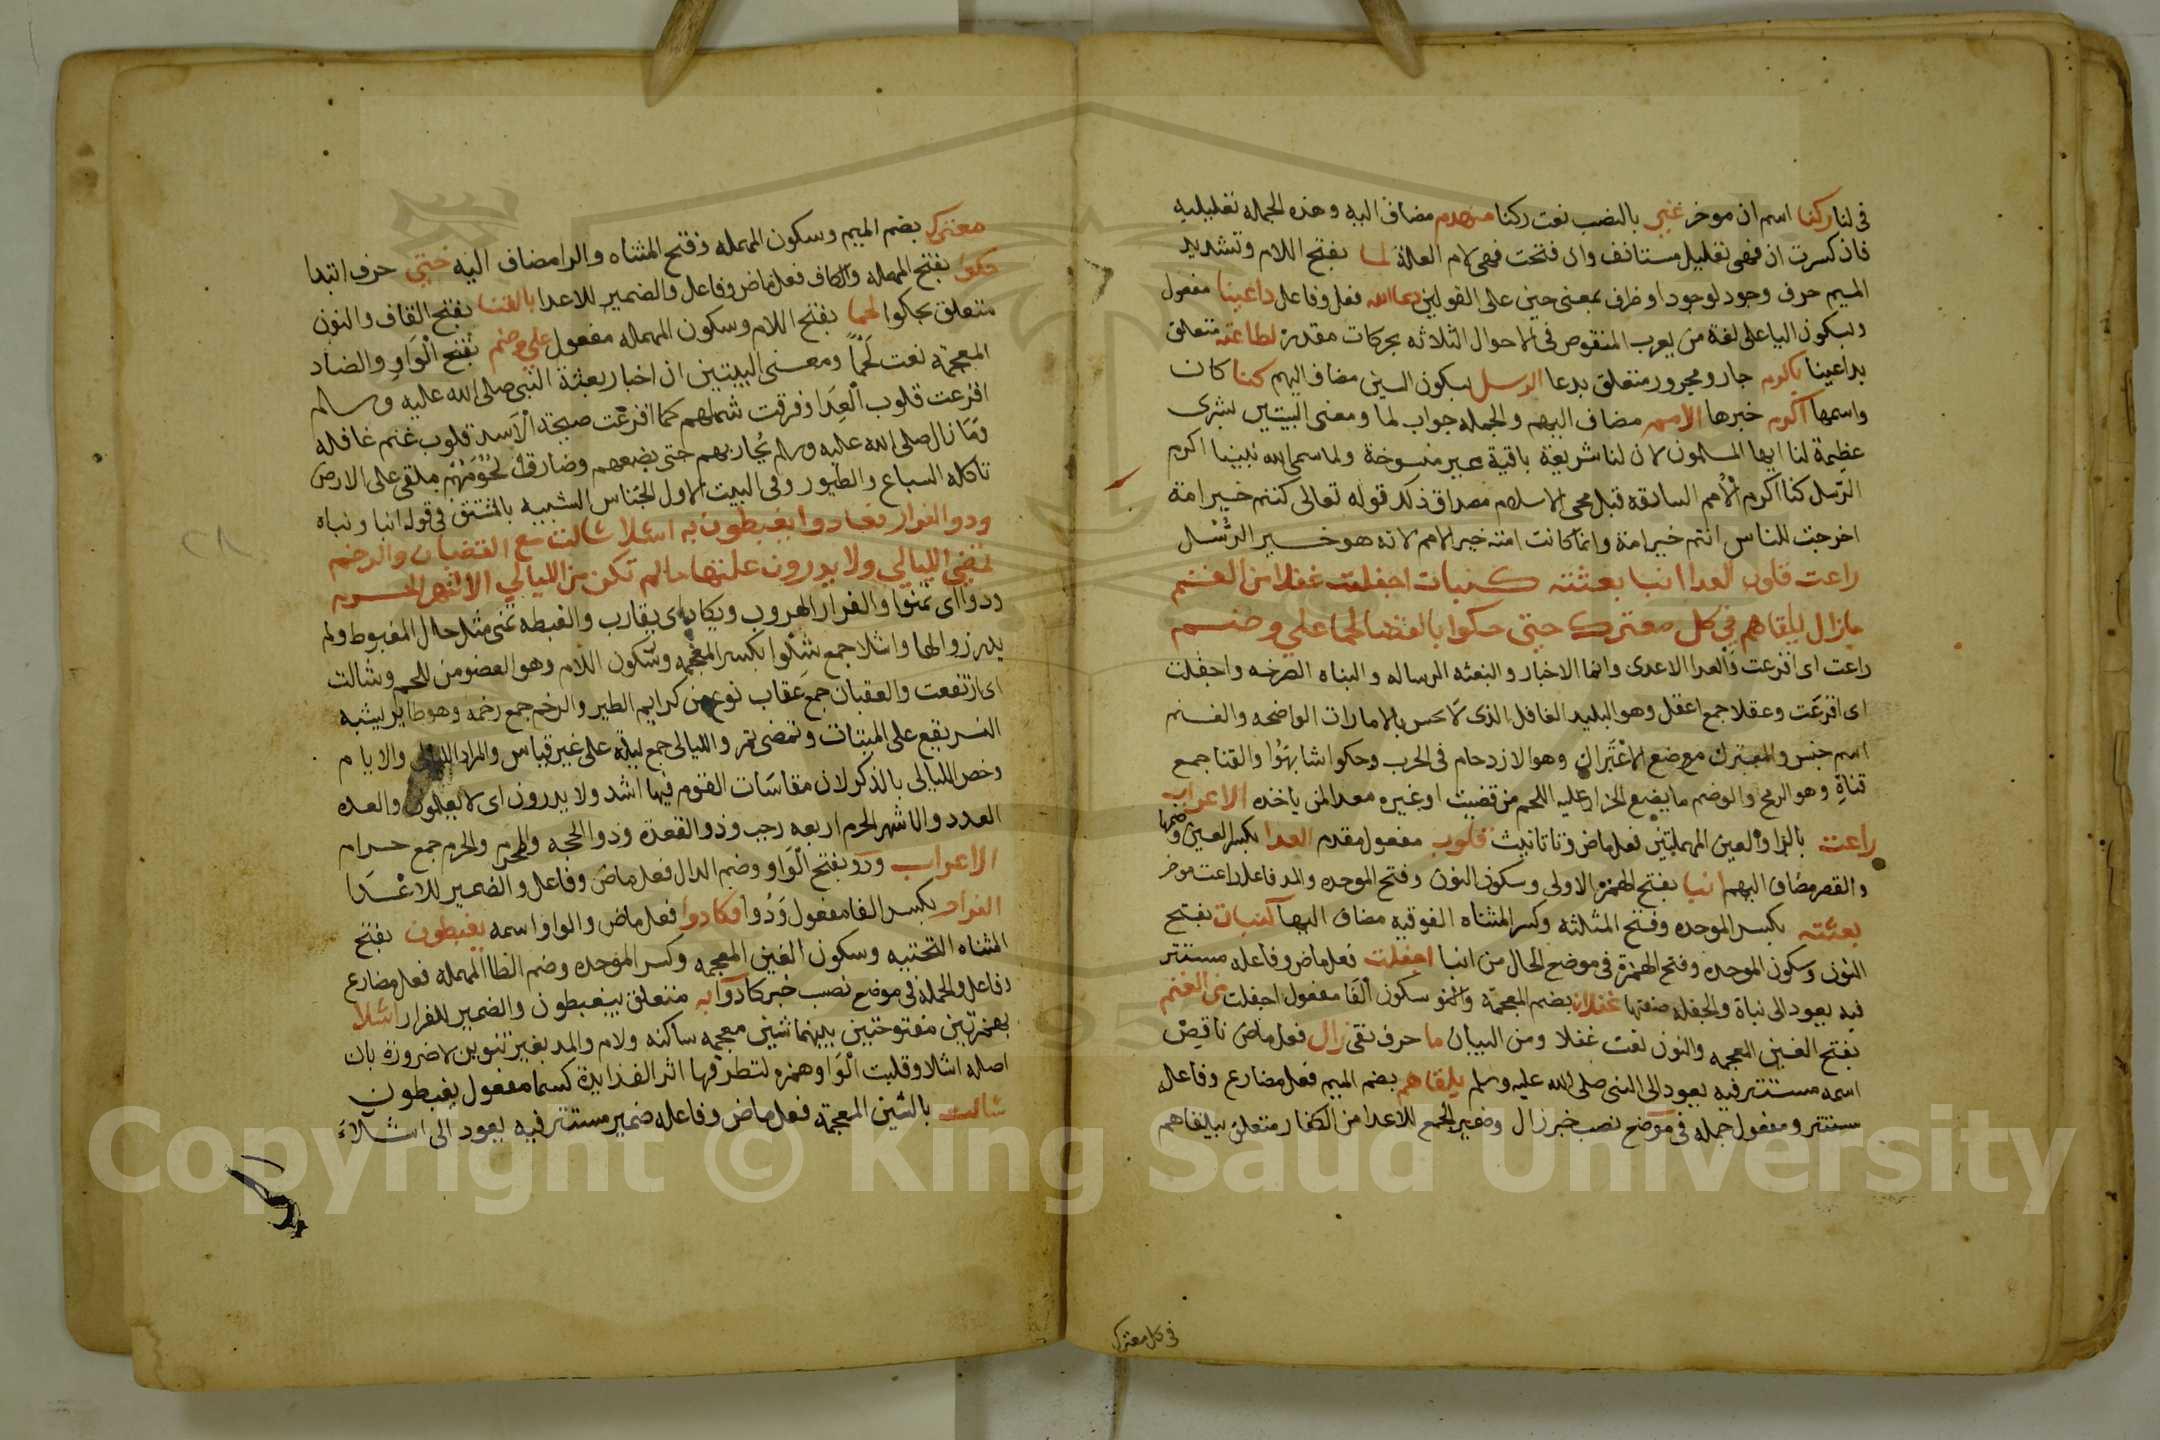 في لنا ركنا اسم ان موخر غير بالنصب نعت ركنا منهدم مضاف اليه وهذه الجمله تعليليه
فان كسرت ان فهي تعليل مستانف وان فتحت فهي لام العلة لما بفتح اللام وتشديد
الميم حرف وجود لوجود او ظرف بمعنى حين على القولين دعا الله فعل وفاعل داعينا مفعول
وبسكون اليا على لغة من يعرب المنقوص في الاحوال الثلاثه بحركات مقدرة لطاعته متعلق
بداعينا باكرم جار ومجرور متعلق بدعا الرسل بسكون السين مضاف اليهم كنا كان
واسمها اكرم خبرها الامم مضاف اليهم والجمله جواب لما ومعنى البيتين بشرى
عظيمة لنا ايها المسلمون لان لنا شريعة باقية غير منسوخة ولما سمى الله نبينا اكرم
الرسل كنا اكرم الامم السابقه قبل مجي الاسلام مصداق ذلك قوله تعالى كنتم خير امة
اخرجت للناس انتم خير امة وانما كانت امته خير الامم لانه هو خير الرسل
راعت قلوب العدا انبا بعثته كنبات اجفلت غفلا من الغنم
ما زال يلقاهم في كل معترك حتى حكوا بالقنا لحما على وضم
راعت اى افزعت والعدا الاعدى وانما الاخبار والبعثه الرساله والنباه الصرخه واجفلت
اى افزعت وغفلا جمع اغفل وهو البليد الغافل الذى لا يحس بالامارات الواضحه والغنم
اسم جنس والمعترك موضع الاعتراك وهو الازدحام في الحرب وحكوا شابهوا والقنا جمع
قناة وهو الرمح والوضم ما يضع الجزار عليه اللحم من قضيب او غيره معدا لمن ياخذه الاعراب
راعت بالرا والعين المهملتين فعل ماض وتا تانيث قلوب مفعول مقدم العدا بكسر العين وضمها
والقصر مضاف اليهم انبا بفتح الهمزة الاولى وسكون النون وفتح الموحده والمد فاعل راعت موخر
بعثته بكسر الموحده وفتح المثلثه وكسر المثناه الفوقيه مضاف اليها كنبات بفتح
النون وسكون الموحده وفتح الهمزة في موضع الحال من انبا اجفلت فعل ماض وفاعله مستتر
فيه يعود الى نباة والجمله صفتها غفلا بضم المعجمة وسكون الفا مفعول اجفلت من الغنم
بفتح الغين المعجمه والنون نعت غفلا ومن البيان ما حرف نفي زال فعل ماض ناقص
اسمه مستتر فيه يعود الى النبي صلى الله عليه وسلم يلقاهم بضم الميم فعل مضارع وفاعل
مستتر ومفعول جملة في موضع نصب خبر زال وضمير الجمع للاعدا من الكفار متعلق بيلقاهم
في كل معترك
معترك بضم الميم وسكون المهمله وفتح المثناه والرا مضاف اليه حتى حرف ابتدا
حكوا بفتح المهمله والكاف فعل ماض وفاعل والضمير للاعدا بالقنا بفتح القاف والنون
متعلق بحكوا لحما بفتح اللام وسكون المهمله مفعول على وضم بفتح الواو والضاد
المعجمة نعت لحما ومعنى البيتين ان اخبار بعثة النبي صلى الله عليه وسلم
افزعت قلوب العدا وفرقت شملهم كما افزعت صيحة الاسد قلوب غنم غافله
وما زال صلى الله عليه وسلم يحاربهم حتى بضعهم وصارت لحومهم ملقى على الارض
تاكله السباع والطيور وفي البيت الاول الجناس الشبيه بالمشتق في قوله انبا ونباه
ودوا الفرار فكادوا يغبطون به اشلا شالت مع العقبان والرخم
تمضي الليالي ولا يدرون عدتها ما لم تكن من الليالي الاشهر الحرم
ودوا اى تمنوا والفرار الهروب ويكاد اى يقارب والغبطه تمنى مثل حال المغبوط ولم
يرد زوالها واشلا جمع شلوا بكسر المعجمه وسكون اللام وهو العضو من اللحم وشالت
اى ارتفعت والعقبان جمع عقاب نوع من كرايم الطير والرخم جمع رخمه وهو طاير يشبه
النسر يقع على الميتات وتمضى تمر والليالى جمع ليلة على غير قياس والمراد الليالى والايام
وخص الليالى بالذكر لان مقاسات القوم فيها اشد ولا يدرون اى لا يعلمون والعده
العدد والاشهر الحرم اربعه رجب وذو القعدة وذوا الحجه والمحرم والحرم جمع حرام
الاعراب ودو بفتح الواو وضم الدال فعل ماض وفاعل والضمير للاعدا
الفرار بكسر الفا مفعول ودوا فكادوا فعل ماض والواو اسمه يغبطون بفتح
المثناه التحتيه وسكون الغين المعجمه وكسر الموحده وضم الطا المهمله فعل مضارع
وفاعل والجمله في موضع نصب خبر كادوا به متعلق بيغبطون والضمير للفرار اشلا
بهمزتين مفتوحتين بينهما شين معجمه ساكنه ولام والمد بغير تنوين لاضرورة بان
اصله اشلاو قلبت الواو همزه لتطرفها اثر الف زايدة كسما مفعول يغبطون
شالت بالشين المعجمة فعل ماض وفاعله ضمير مستتر فيه يعود الى اشلاء
٢٨
Copyright © King Saud University